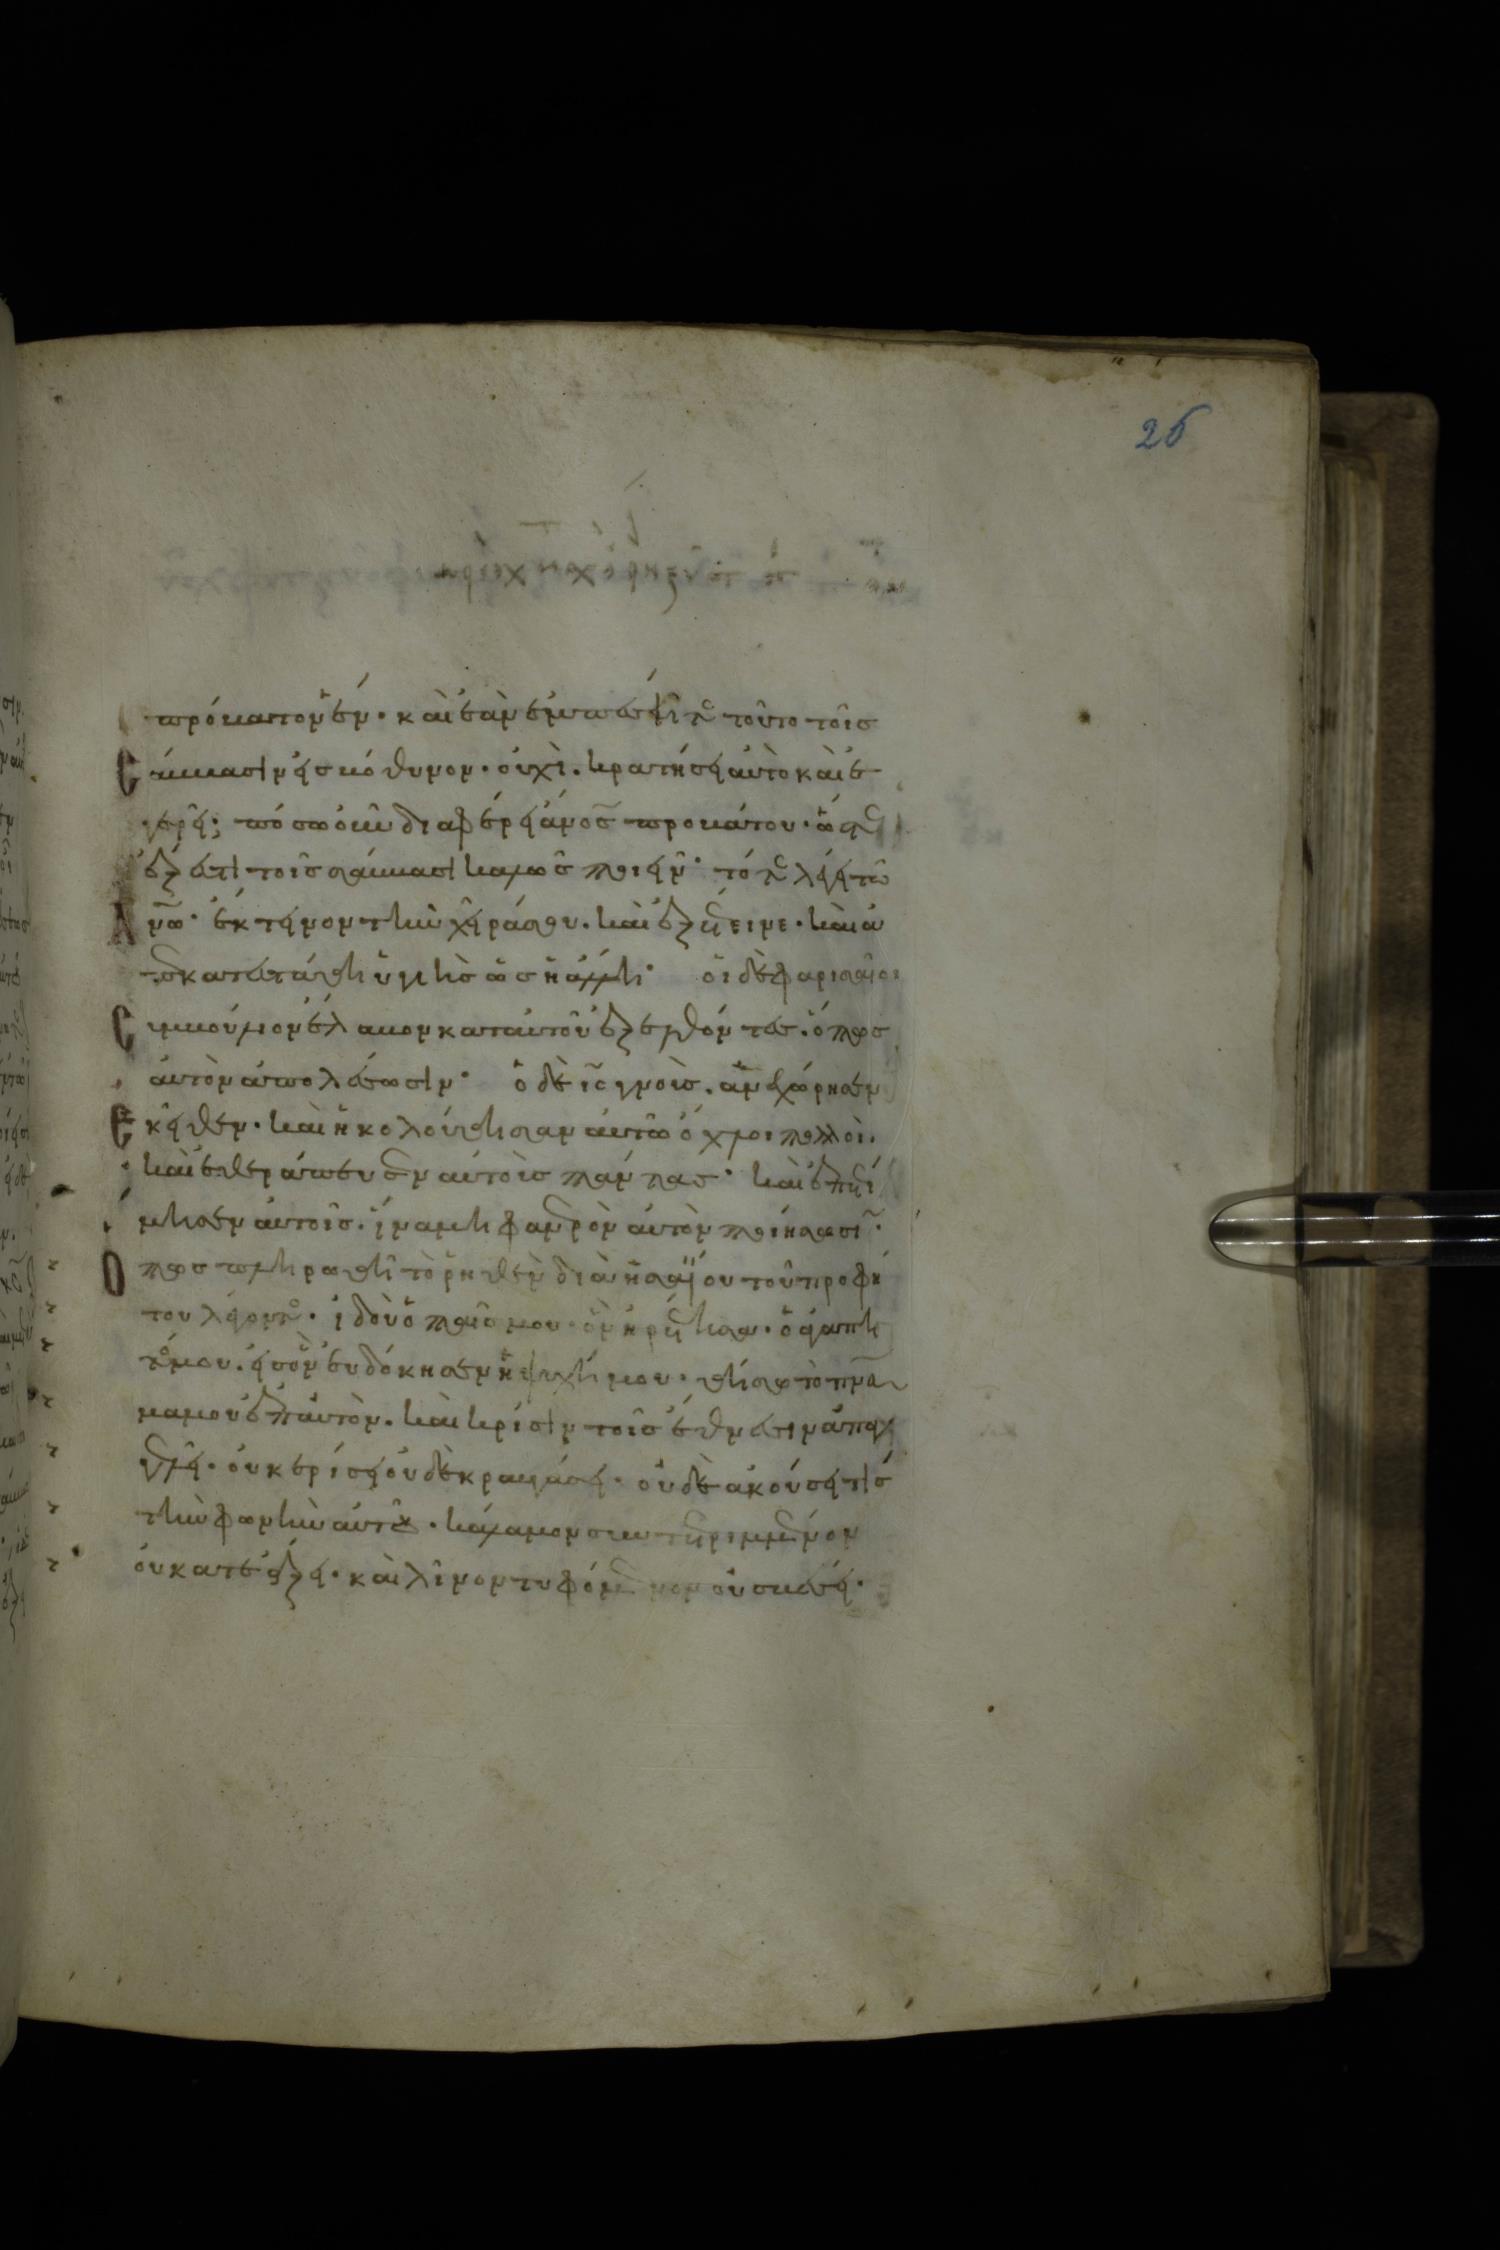 26
πρόβατον ἕν· καὶ ἐὰν ἐμπέσῃ τοῦτο τοῖς
σάββασιν εἰς βόθυνον· οὐχὶ κρατήσει αὐτὸ καὶ ἐ
γερεῖ; πόσω οὖν διαφέρει ἄνος προβάτου· ὥστε
ἔξεστι τοῖς σάββασι καλῶς ποιεῖν· τότε λέγει τῶ
ἀνω· ἔκτεινον τὴν χεῖρά σου· καὶ ἐξέτεινε· καὶ ἀ
ποκατεστάθη ὑγιὴς ὡς ἡ ἄλλη· οἱ δὲ φαρισαῖοι
συμβούλιον ἔλαβον κατ αὐτοῦ ἐξελθόντες· ὅπως
αὐτὸν ἀπολέσωσιν· ὁ δὲ ις γνοὺς ἀνεχώρησεν
ἐκεῖθεν· καὶ ἠκολούθησαν αὐτῶ ὄχλοι πολλοί·
καὶ ἐθεράπευσεν αὐτοὺς πάντας· καὶ ἐπετί
μησεν αὐτοῖς· ἵνα μὴ φανερὸν αὐτὸν ποιήσωσι·
Ὅπως πληρωθῆ τὸ ῥηθὲν διὰ ἡσαΐου τοῦ προφή
του λέγοντος· ἰδοὺ ὁ παῖς μου· ὃν ἡρέτισα· ὁ ἀγαπη
τός μου· εἰς ὃν εὐδόκησεν ἡ ψυχή μου· θήσω τὸ πνα
μα μου ἐπ αὐτὸν· καὶ κρίσιν τοῖς ἔθνεσιν ἀπαγ
γελεῖ· οὐκ ἐρίσει οὐδὲ κραυγάσει· οὐδὲ ἀκούσει τίς
τὴν φωνὴν αὐτοῦ· κάλαμον συντετριμμένον
οὐ κατεάξει· καὶ λίνον τυφόμενον οὐ σβέσει·